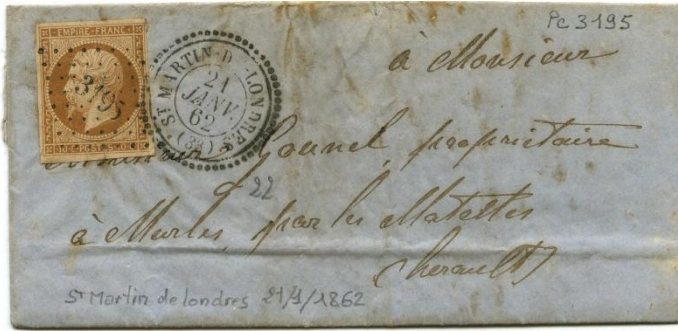 Pc 3195
EMPIRE FRANC.
3195
ST MARTIN-D-LONDRES
21
JANV.
62
(33)
à Monsieur
Gounel, propriétaire
22
à Murles, par les Matelles
herault
St Martin de londres 21/1/1862